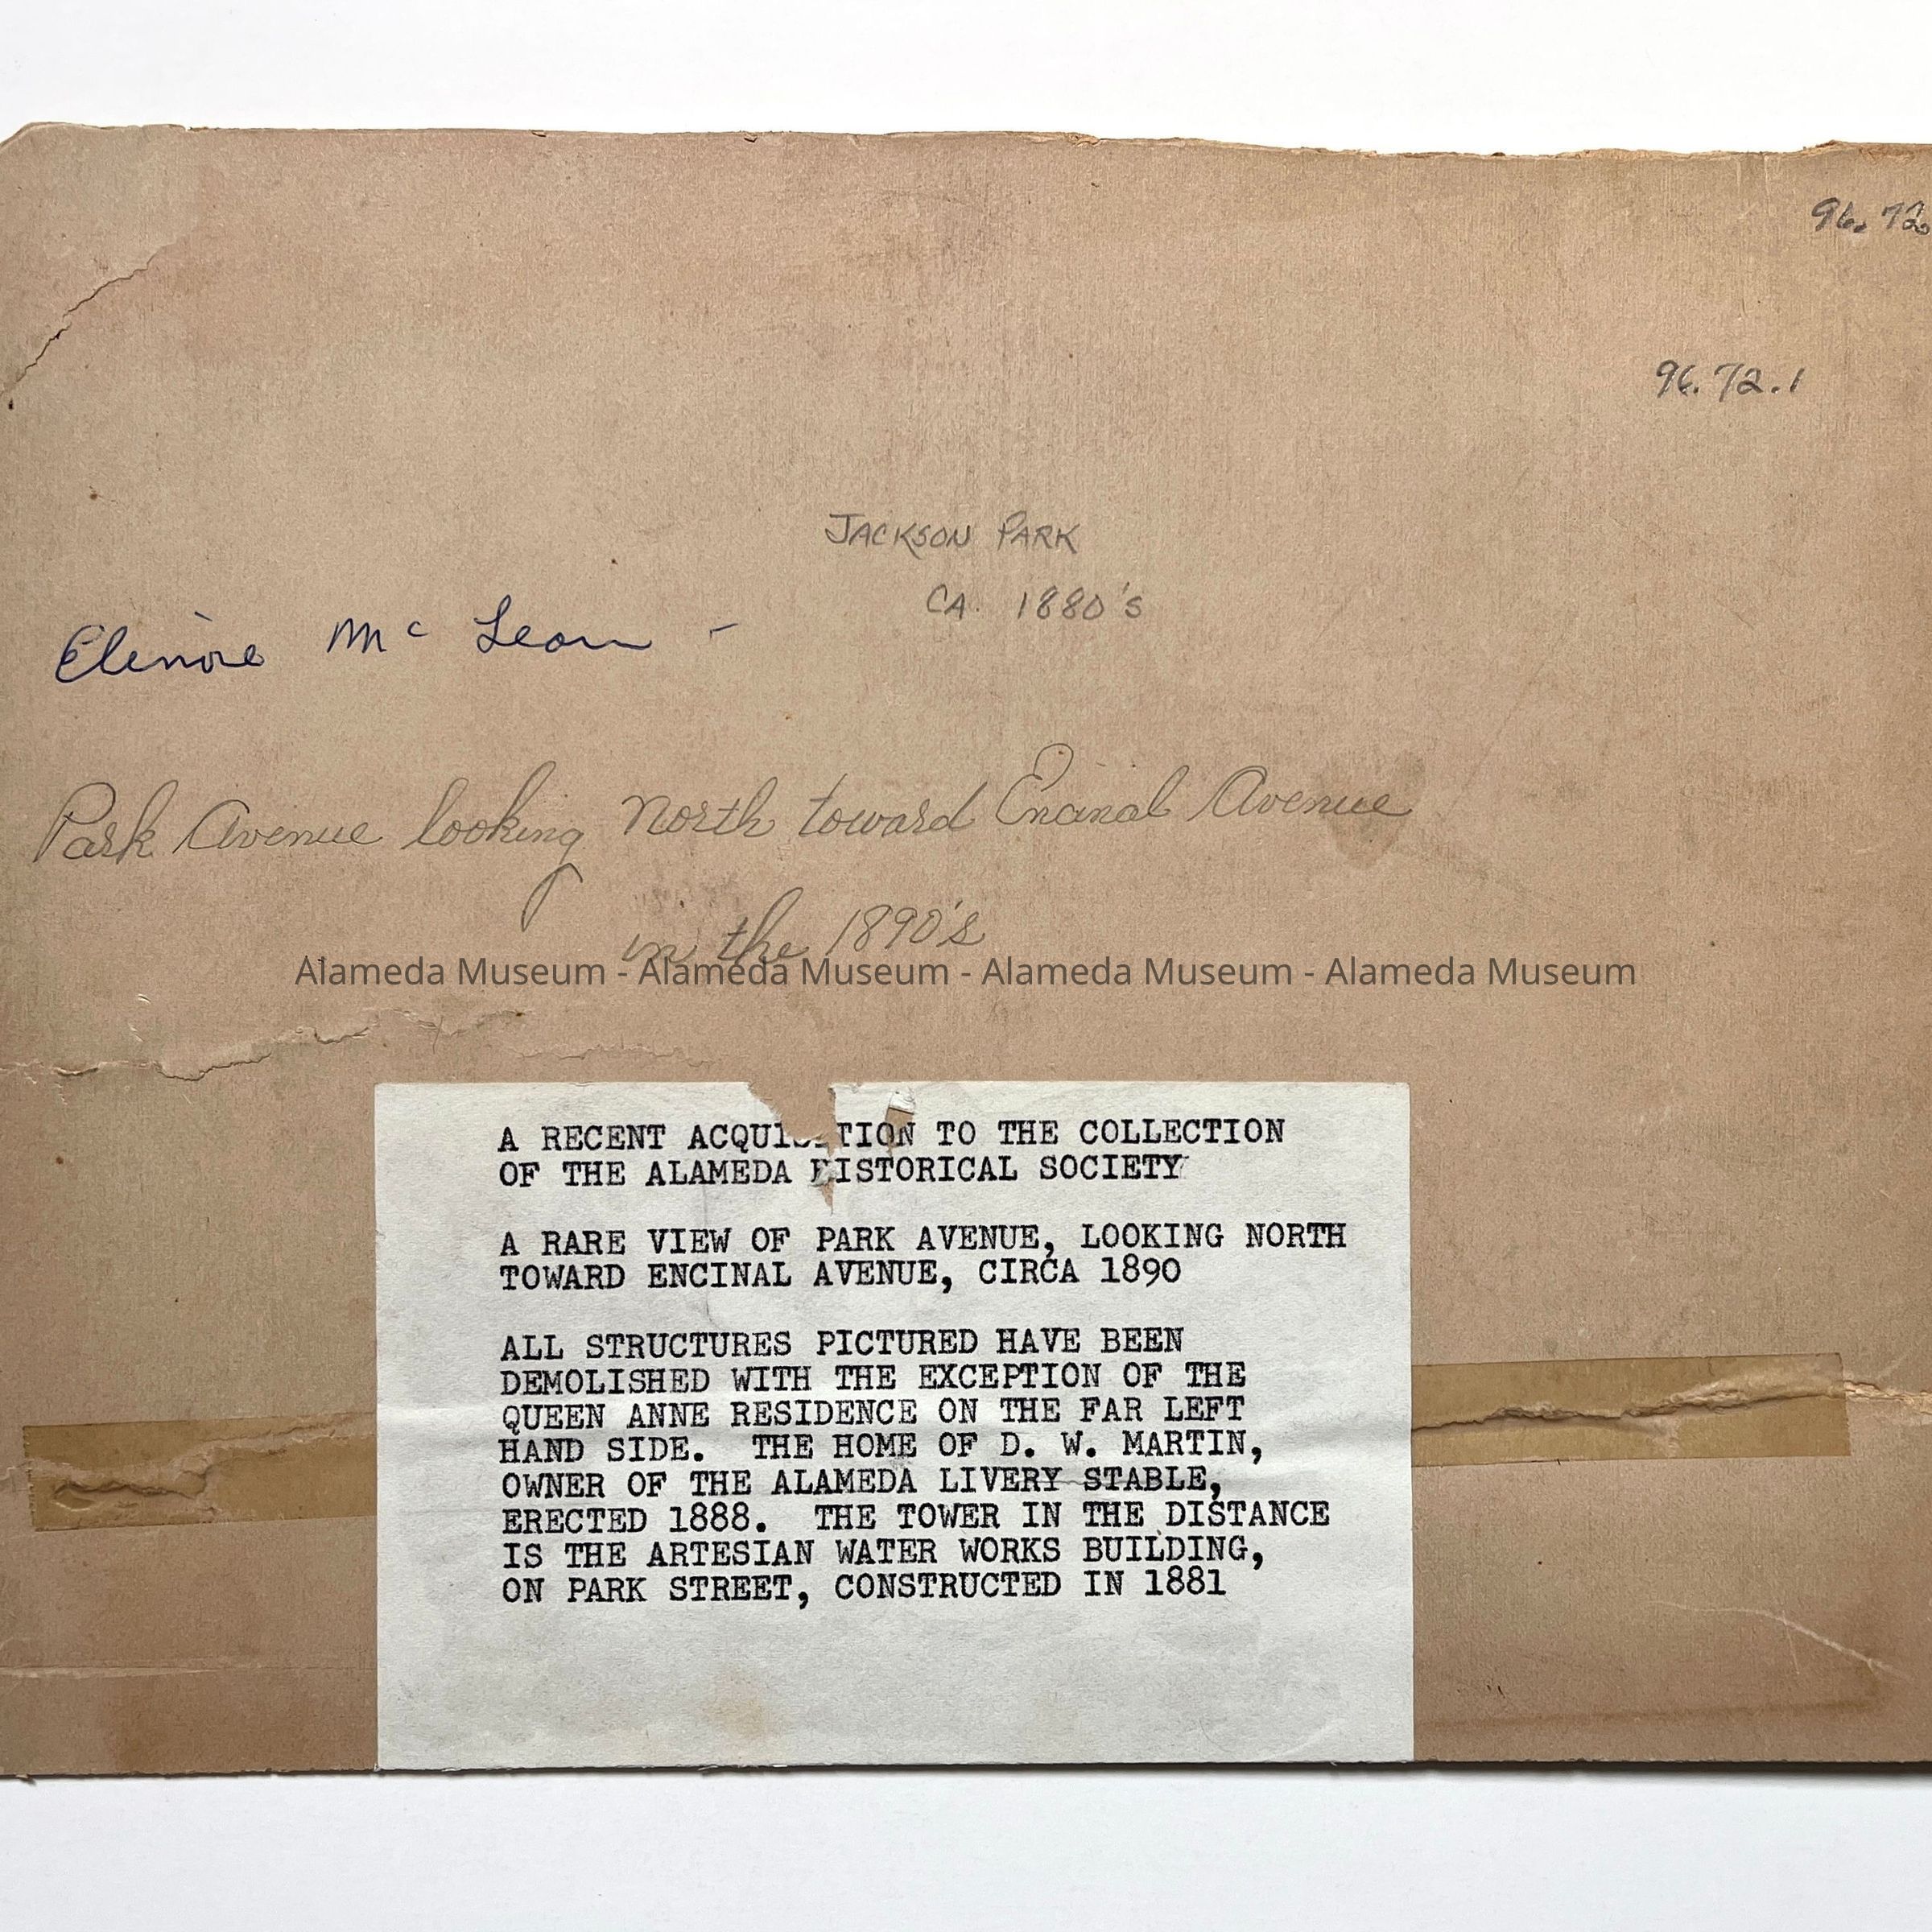 96.72.
96.72.1
JACKSON PARK
CA. 1880's
Elinore Mc Lean -
Park Avenue looking North toward Encinal Avenue
in the 1890's
Alameda Museum - Alameda Museum - Alameda Museum - Alameda Museum
A RECENT ACQUISITION TO THE COLLECTION
OF THE ALAMEDA HISTORICAL SOCIETY
A RARE VIEW OF PARK AVENUE, LOOKING NORTH
TOWARD ENCINAL AVENUE, CIRCA 1890
ALL STRUCTURES PICTURED HAVE BEEN
DEMOLISHED WITH THE EXCEPTION OF THE
QUEEN ANNE RESIDENCE ON THE FAR LEFT
HAND SIDE. THE HOME OF D. W. MARTIN,
OWNER OF THE ALAMEDA LIVERY STABLE,
ERECTED 1888. THE TOWER IN THE DISTANCE
IS THE ARTESIAN WATER WORKS BUILDING,
ON PARK STREET, CONSTRUCTED IN 1881